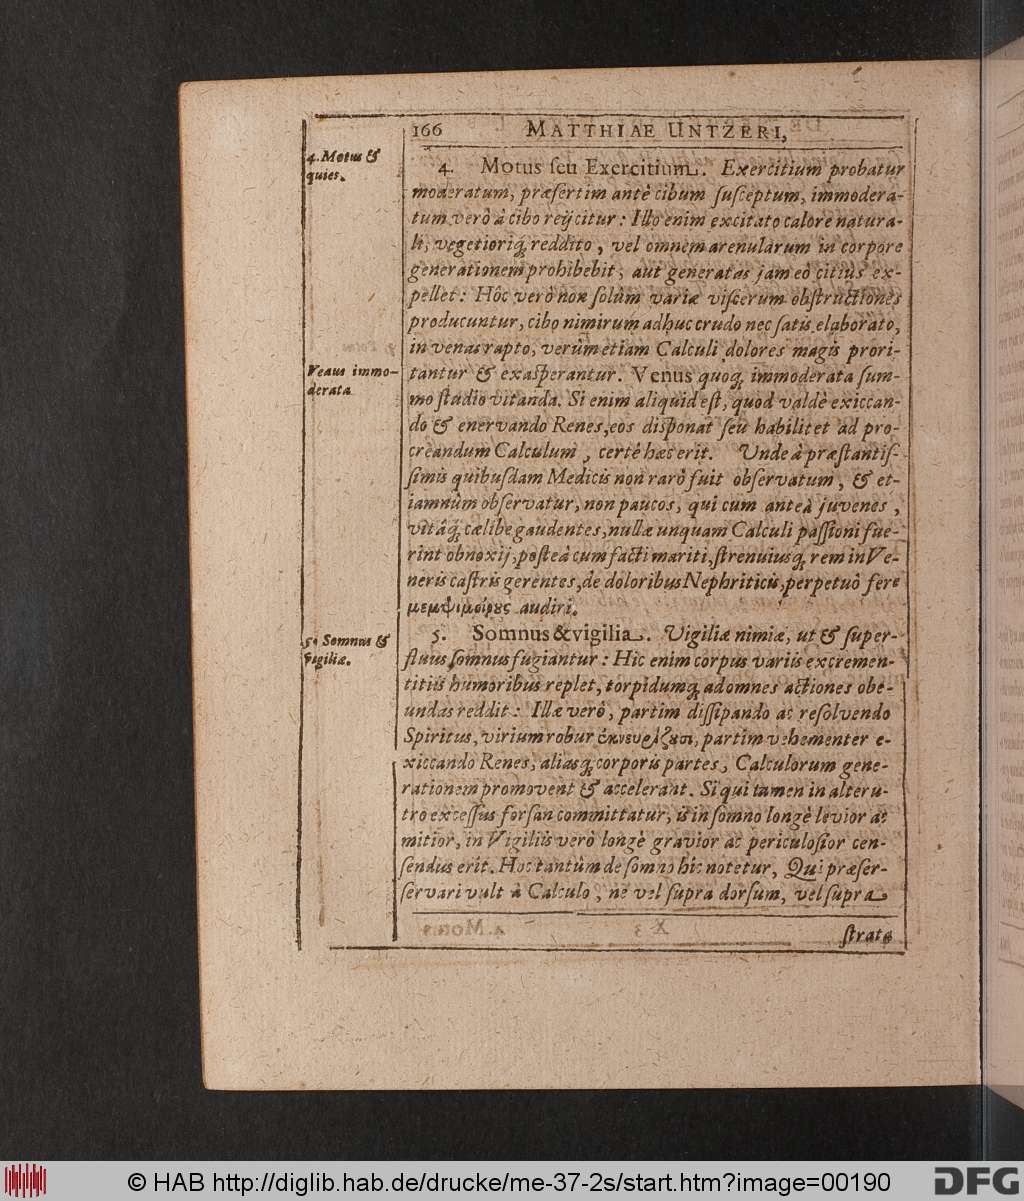 166 MATTHIAE UNTZERI,
4. Motus &
quies.
4. Motus ſeu Exercitium. Exercitium probatur
moderatum, præſertim antè cibum ſuſceptum, immodera-
tum verò à cibo reijcitur: Illo enim excitato calore natura-
li, vegetioriq́; reddito, vel omnem arenularum in corpore
generationem prohibebit, aut generatas jam eò citius ex-
pellet: Hôc verò non ſolùm variæ viſcerum obſtructiones
producuntur, cibo nimirum adhuc crudo nec ſatis elaborato,
in venas rapto, verùm etiam Calculi dolores magis prori-
Venus immo-
derata
tantur & exaſperantur. Venus quoq́; immoderata ſum-
mo ſtudio vitanda. Si enim aliquid eſt, quod valdè exiccan-
do & enervando Renes, eos diſponat ſeu habilitet ad pro-
creandum Calculum, certè hæc erit. Unde à præſtantiſ-
ſimis quibuſdam Medicis non rarò fuit obſervatum, & et-
iamnùm obſervatur, non paucos, qui cum anteà juvenes,
vitâq́; cælibe gaudentes, nullæ unquam Calculi paſſioni fue-
rint obnoxij, poſteà cum facti mariti, ſtrenuiusq́; rem in Ve-
neris caſtris gerentes, de doloribus Nephriticis, perpetuò fere
μεμψιμοίρους audiri.
5. Somnus &
vigiliæ.
5. Somnus & vigilia. Vigiliæ nimiæ, ut & ſuper-
fluus ſomnus fugiantur: Hic enim corpus variis excremen-
titiis humoribus replet, torpidumq́; ad omnes actiones obe-
undas reddit: Illæ verò, partim diſſipando ac reſolvendo
Spiritus, virium robur ἐκνευρίζουσι, partim vehementer e-
xiccando Renes, aliasq́; corporis partes, Calculorum gene-
rationem promovent & accelerant. Si qui tamen in alteru-
tro exceſſus forſan committatur, is in ſomno longè levior ac
mitior, in Vigiliis verò longè gravior ac periculoſior cen-
ſendus erit. Hoc tantùm de ſomno hîc notetur, Qui præſer-
ſervari vult à Calculo, ne vel ſupra dorſum, vel ſupra
ſtrata
© HAB http://diglib.hab.de/drucke/me-37-2s/start.htm?image=00190
DFG